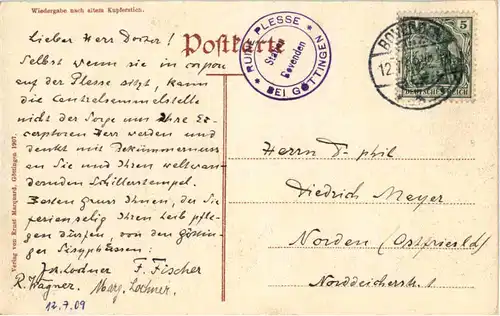 Wiedergabe nach altem Kupferstich.
Postkarte
RUINE PLESSE
Station
Bovenden
BEI GÖTTINGEN
BOVENDEN
5
DEUTSCHES REICH
Lieber Herr Doctor!
Selbst wenn sie in corpore
auf der Plesse sitzt, kann
die Centralsammelstelle
nicht der Sorge um Ihre
Herr werden und
denkt mit Bekümmernuss
an Sie und Ihren weltwan-
dernden Schillerstempel.
Besten Gruss Ihnen, der Sie
ferienselig Ihren Leib pfle-
gen dürfen, von den Göttin-
ger Sisyphussen:
F. Fischer
R. Wagner. Marg. Lochner.
12.7.09
Herrn Dr phil
Diedrich Meyer
Norden (Ostfriesld)
Norddeicherstr. 1
Verlag von Ernst Marquard, Göttingen. 1907.